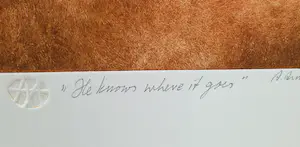 "He knows where it goes"